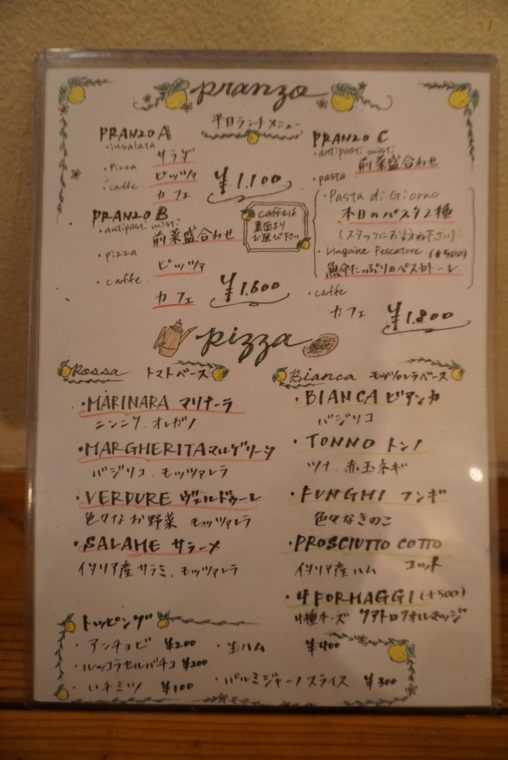 pranzo
平日ランチメニュー
PRANZO A
・insalata サラダ
・Pizza ピッツァ
・caffe カフェ
¥1.100
PRANZO B
・antipasti misti
前菜盛合わせ
・pizza ピッツァ
・caffe カフェ
¥1.600
caffeは
裏面より
お選び下さい
PRANZO C
・antipasti misti
前菜盛合わせ
・pasta
・Pasta di Giorno
本日のパスタ2種
(スタッフにお尋ね下さい)
・Linguine Pescatore (+500)
魚介たっぷりのペスカトーレ
・caffe
カフェ ¥1.800
pizza
Rossa トマトベース
・MARINARA マリナーラ
ニンニク、オレガノ
・MARGHERITA マルゲリータ
バジリコ、モッツァレラ
・VERDURE ヴェルドゥーレ
色々なお野菜 モッツァレラ
・SALAME サラーメ
イタリア産サラミ、モッツァレラ
Bianca モッツァレラベース
・BIANCA ビアンカ
バジリコ
・TONNO トンノ
ツナ、赤玉ネギ
・FUNGHI フンギ
色々なきのこ
・PROSCIUTTO COTTO
イタリア産ハム コット
・4 FORMAGGI (+500)
4種チーズ クアトロフォルマッジ
トッピング
・アンチョビ ¥200
・生ハム ¥400
・ルッコラセルバチコ ¥200
・ハチミツ ¥100
・パルミジャーノスライス ¥300